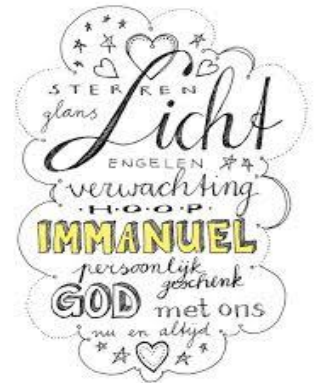 STERREN
glans
Licht
ENGELEN
verwachting
HOOP
IMMANUEL
persoonlijk
geschenk
GOD met ons
nu en altijd